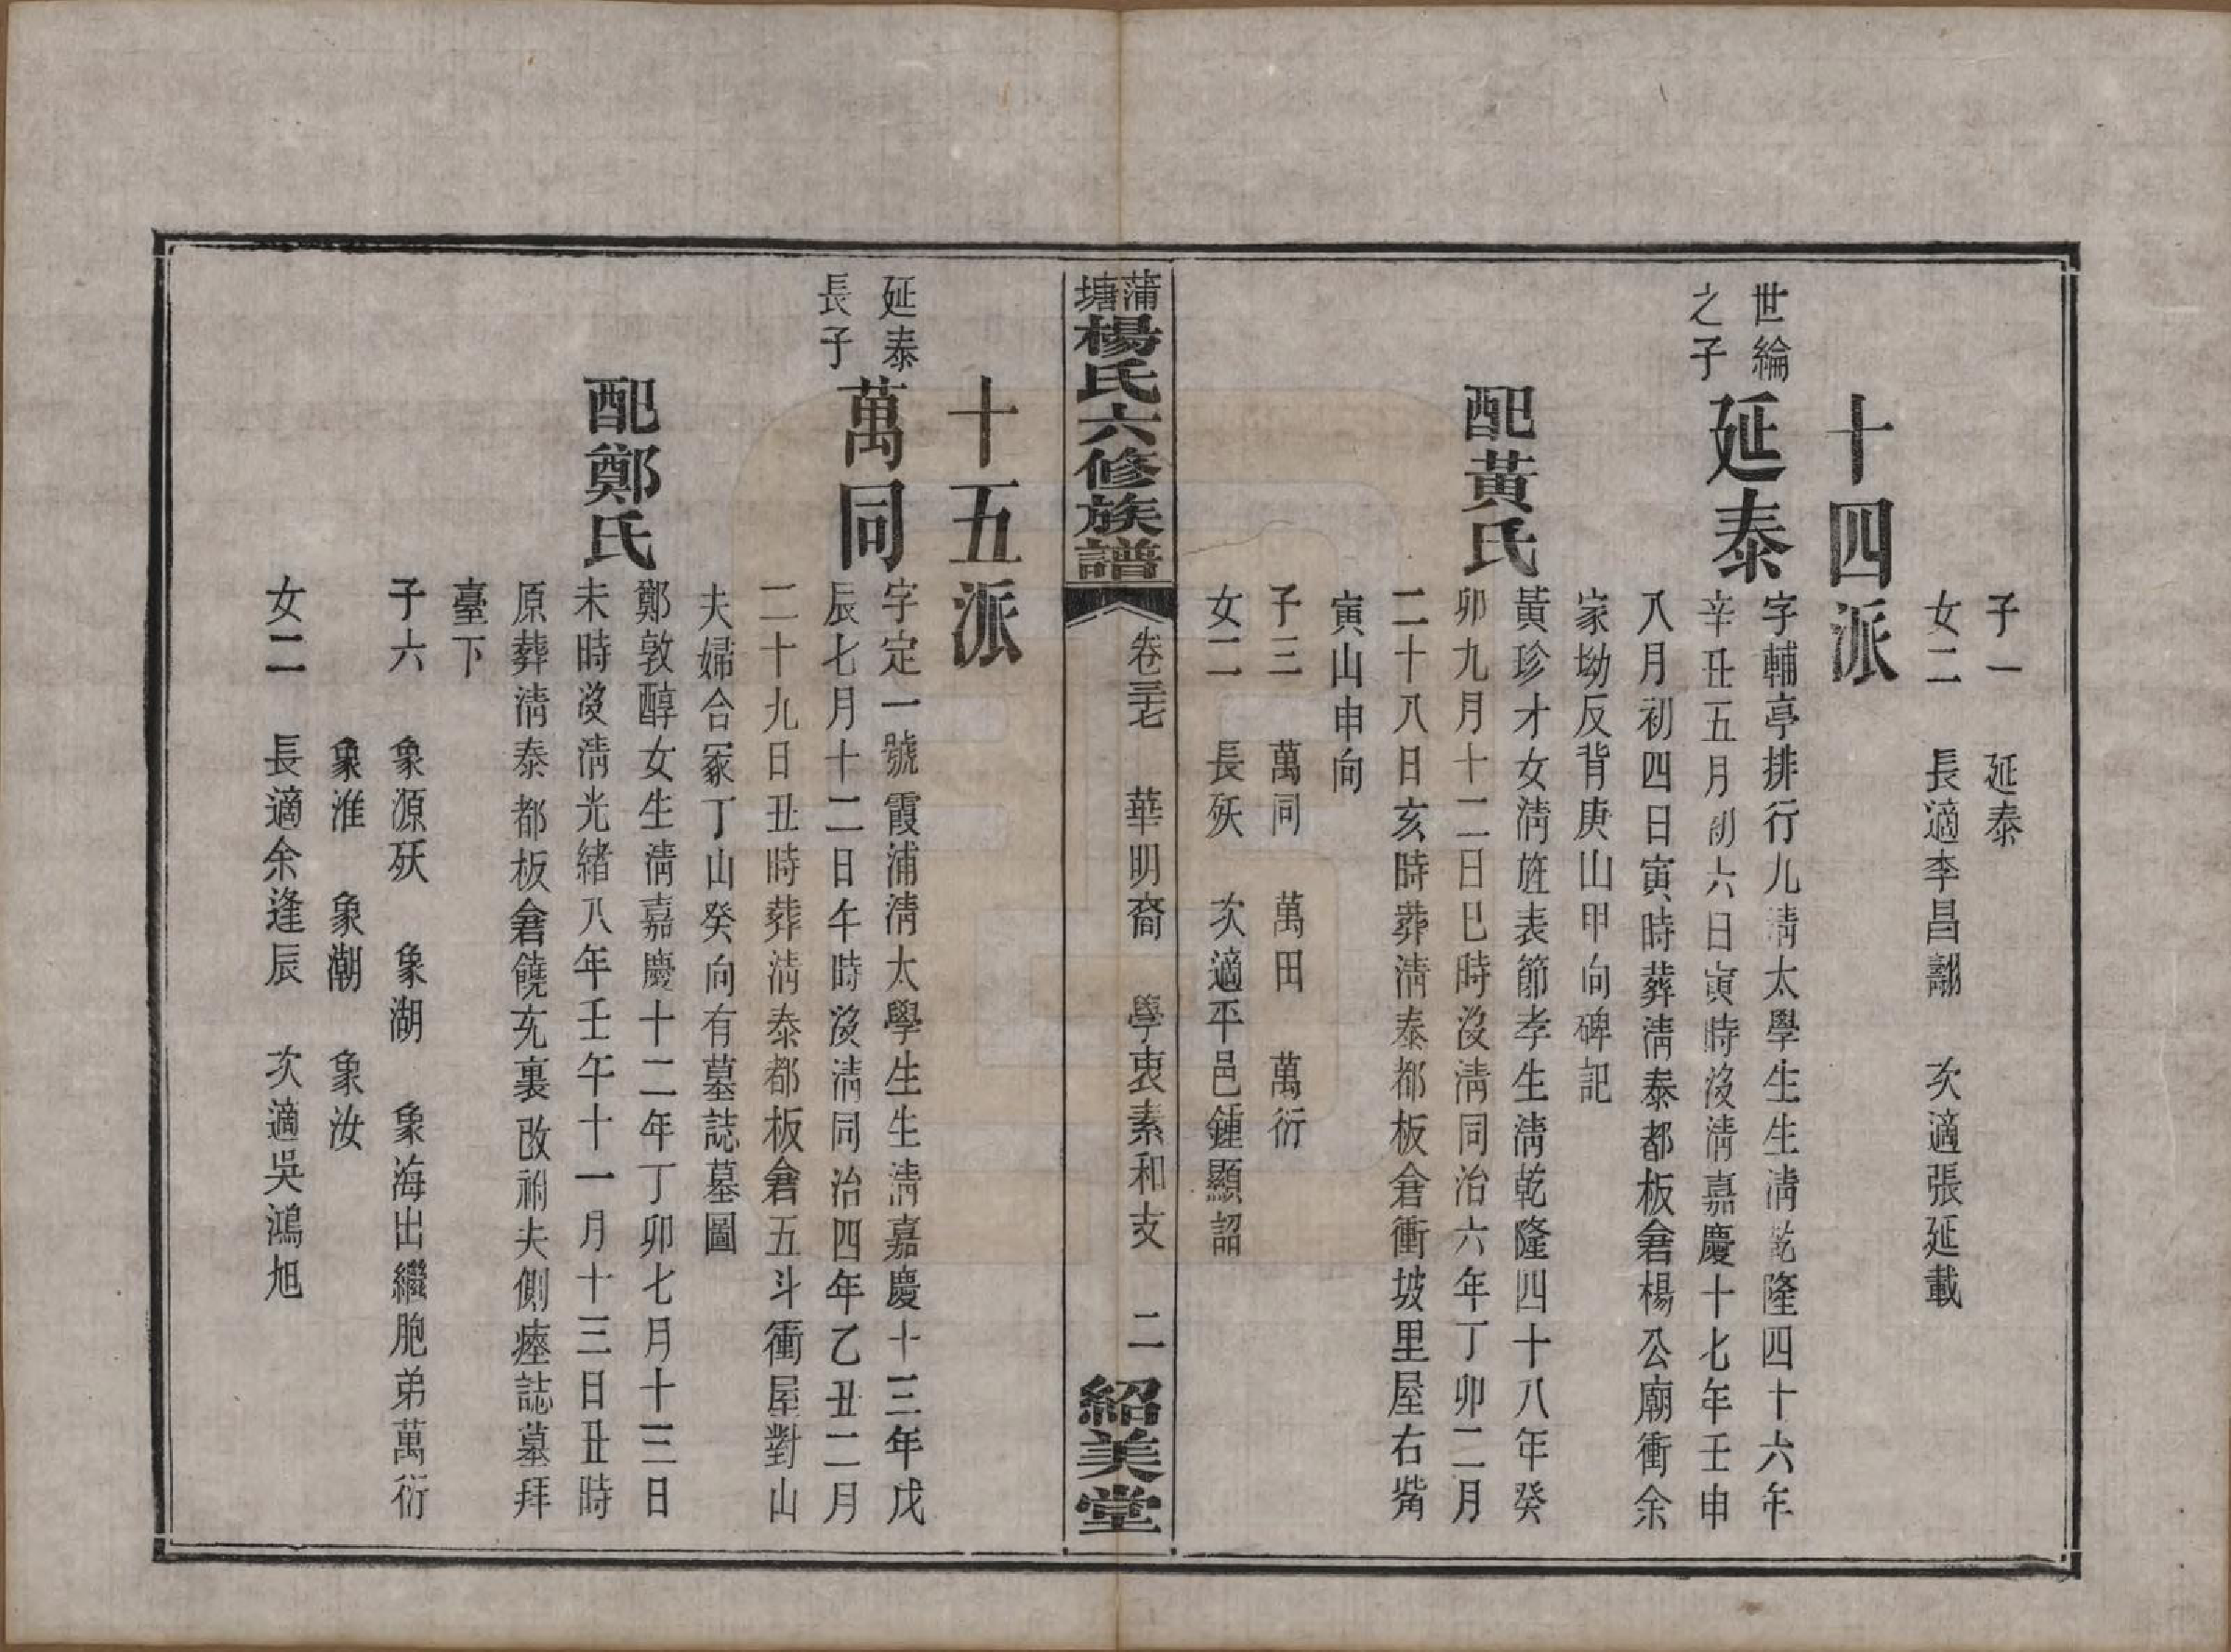 子一　延泰
女二　長適李昌翽　次適張延載
十四派
世綸之子
延泰
字輔亭排行九淸太學生生淸乾隆四十六年
辛丑五月初六日寅時沒淸嘉慶十七年壬申
八月初四日寅時葬淸泰都板倉楊公廟衝余
家坳反背庚山甲向碑記
配黃氏
黃珍才女淸旌表節孝生淸乾隆四十八年癸
卯九月十二日巳時沒淸同治六年丁卯二月
二十八日亥時葬淸泰都板倉衝坡里屋右嘴
寅山申向
子三　萬同　萬田　萬衍
女二　長殀　次適平邑鍾顯詔
蒲塘楊氏六修族譜
卷三七　華明裔　學衷素和支　二
紹美堂
十五派
延泰長子
萬同
字定一號霞浦淸太學生生淸嘉慶十三年戊
辰七月十二日午時沒淸同治四年乙丑二月
二十九日丑時葬淸泰都板倉五斗衝屋對山
夫婦合冢丁山癸向有墓誌墓圖
配鄭氏
鄭敦醇女生淸嘉慶十二年丁卯七月十三日
未時沒淸光緒八年壬午十一月十三日丑時
原葬淸泰都板倉饒充裏改祔夫側瘞誌墓拜
臺下
子六　象源殀　象湖　象海出繼胞弟萬衍
象淮　象潮　象汝
女二　長適余逢辰　次適吳鴻旭